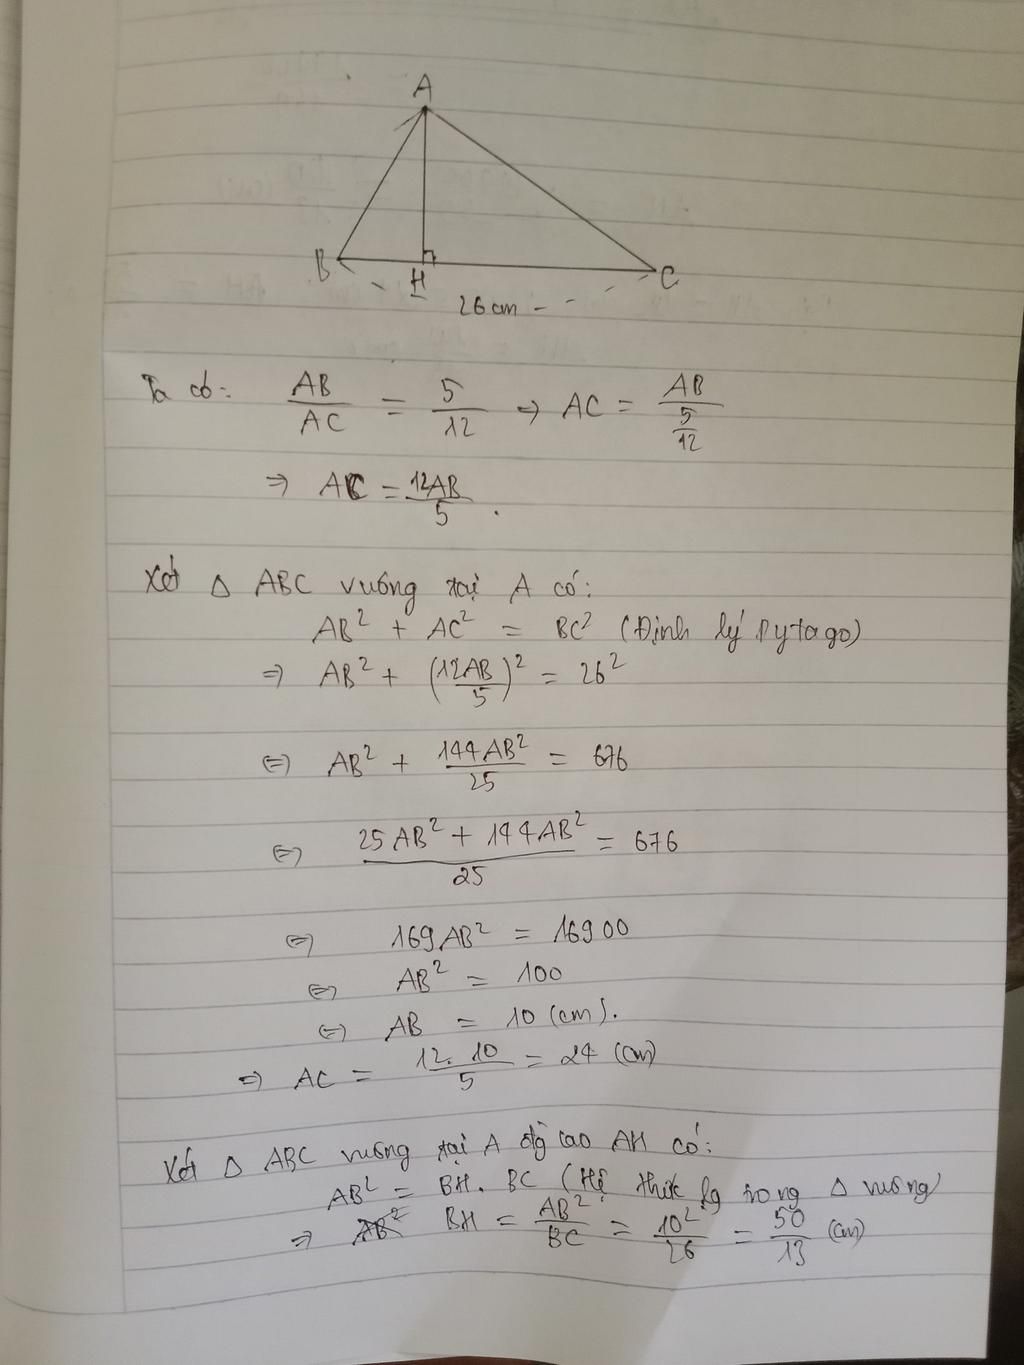 A
B
H
C
26 cm
Ta có: AB/AC = 5/12 => AC = AB/(5/12)
=> AC = 12AB/5.
Xét Δ ABC vuông tại A có:
AB² + AC² = BC² (Định lý Pytago)
=> AB² + (12AB/5)² = 26²
<=> AB² + 144AB²/25 = 676
<=> (25AB² + 144AB²)/25 = 676
<=> 169AB² = 16900
<=> AB² = 100
<=> AB = 10 (cm).
=> AC = 12.10/5 = 24 (cm)
Xét Δ ABC vuông tại A đg cao AH có:
AB² = BH. BC (Hệ thức lg trong Δ vuông)
=> BH = AB²/BC = 10²/26 = 50/13 (cm)